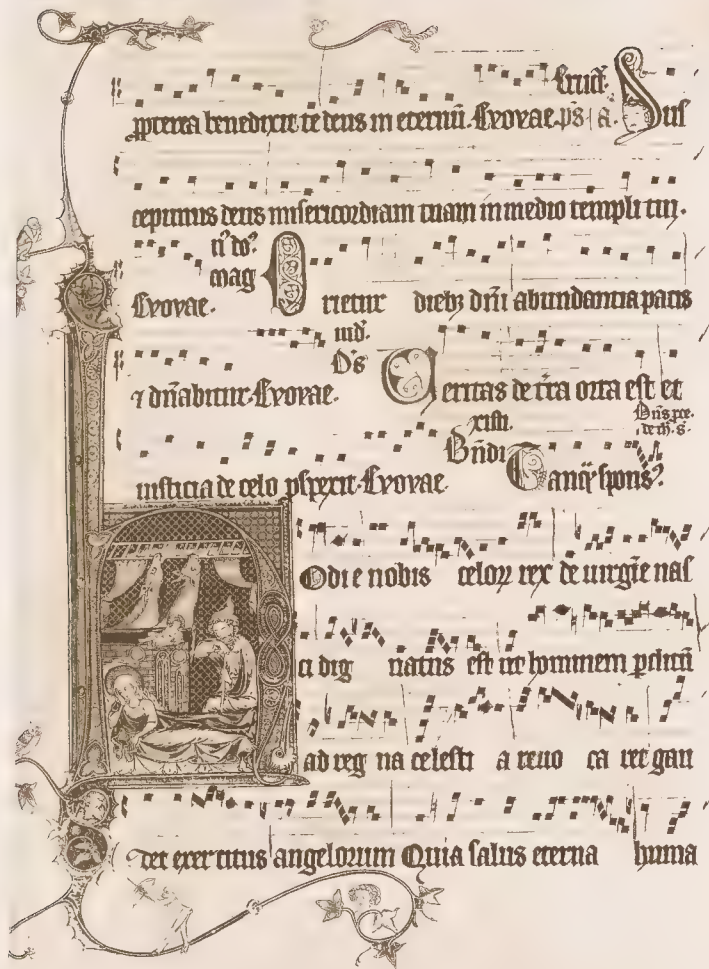 Eruct.
ppterea benedixit te deus in eternū. Evovae. ps. a. Sus
cepimus deus misericordiam tuam in medio templi tui.
mag
Evovae. Orietur dieb3 dn̄i abundantia pacis
iud.
Ds
⁊ dn̄abitur. Evovae. Veritas de tr̄a orta est et
xisti.
Bn̄di
iusticia de celo pspexit. Evovae. Tanq̄ spons⁹.
Hodie nobis celoꝝ rex de uirgīe nas
ci dig natus est ut hominem pditū
ad reg na celesti a reuo ca ret gau
det exercitus angelorum Quia salus eterna huma